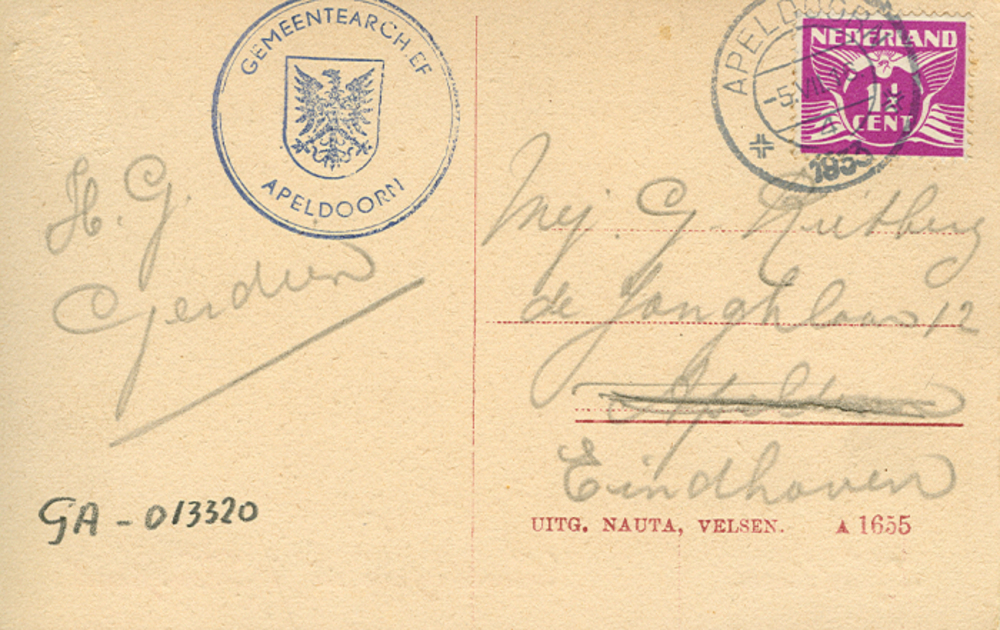 GEMEENTEARCHIEF
APELDOORN
APELDOORN
1933
NEDERLAND
1½
CENT
H. G.
Gerdien
Mej. G. Rietberg
de Jonghlaan 12
Apeldoorn
Eindhoven
GA - 013320
UITG. NAUTA, VELSEN. ▲ 1655